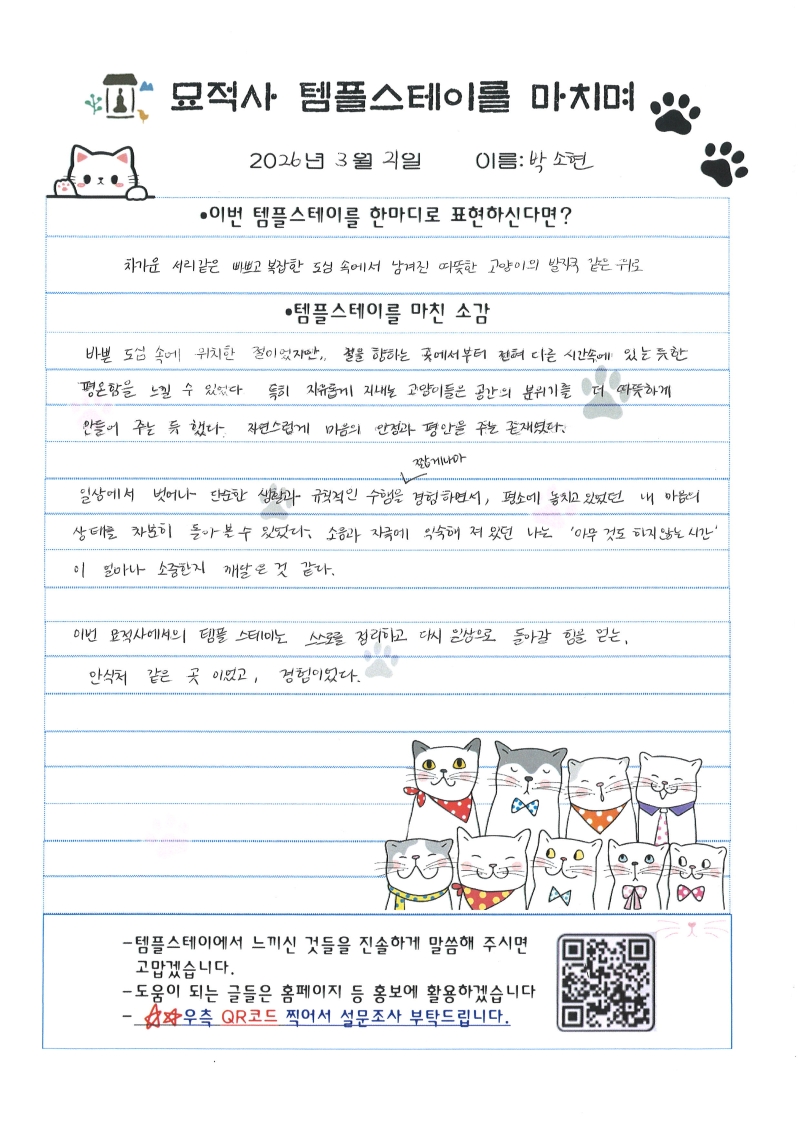 묘적사 템플스테이를 마치며
2026년 3월 21일 이름: 박소현
•이번 템플스테이를 한마디로 표현하신다면?
차가운 서리같은 바쁘고 복잡한 도심 속에서 남겨진 따뜻한 고양이의 발자국 같은 위로
•템플스테이를 마친 소감
바쁜 도심 속에 위치한 절이었지만, 절을 향하는 곳에서부터 전혀 다른 시간속에 있는 듯한
평온함을 느낄 수 있었다 특히 자유롭게 지내는 고양이들은 공간의 분위기를 더 따뜻하게
만들어 주는 듯 했다. 자연스럽게 마음의 안정과 평안을 주는 존재였다.
짧게나마
일상에서 벗어나 단순한 생활과 규칙적인 수행을 경험하면서, 평소에 놓치고 있었던 내 마음의
상태를 차분히 돌아 볼 수 있었다. 소음과 자극에 익숙해 져 있던 나는 '아무 것도 하지 않는 시간'
이 얼마나 소중한지 깨달은 것 같다.
이번 묘적사에서의 템플 스테이는 스스로를 정리하고 다시 일상으로 돌아갈 힘을 얻는,
안식처 같은 곳 이었고, 경험이었다.
-템플스테이에서 느끼신 것들을 진솔하게 말씀해 주시면
고맙겠습니다.
-도움이 되는 글들은 홈페이지 등 홍보에 활용하겠습니다
- ☆☆우측 QR코드 찍어서 설문조사 부탁드립니다.